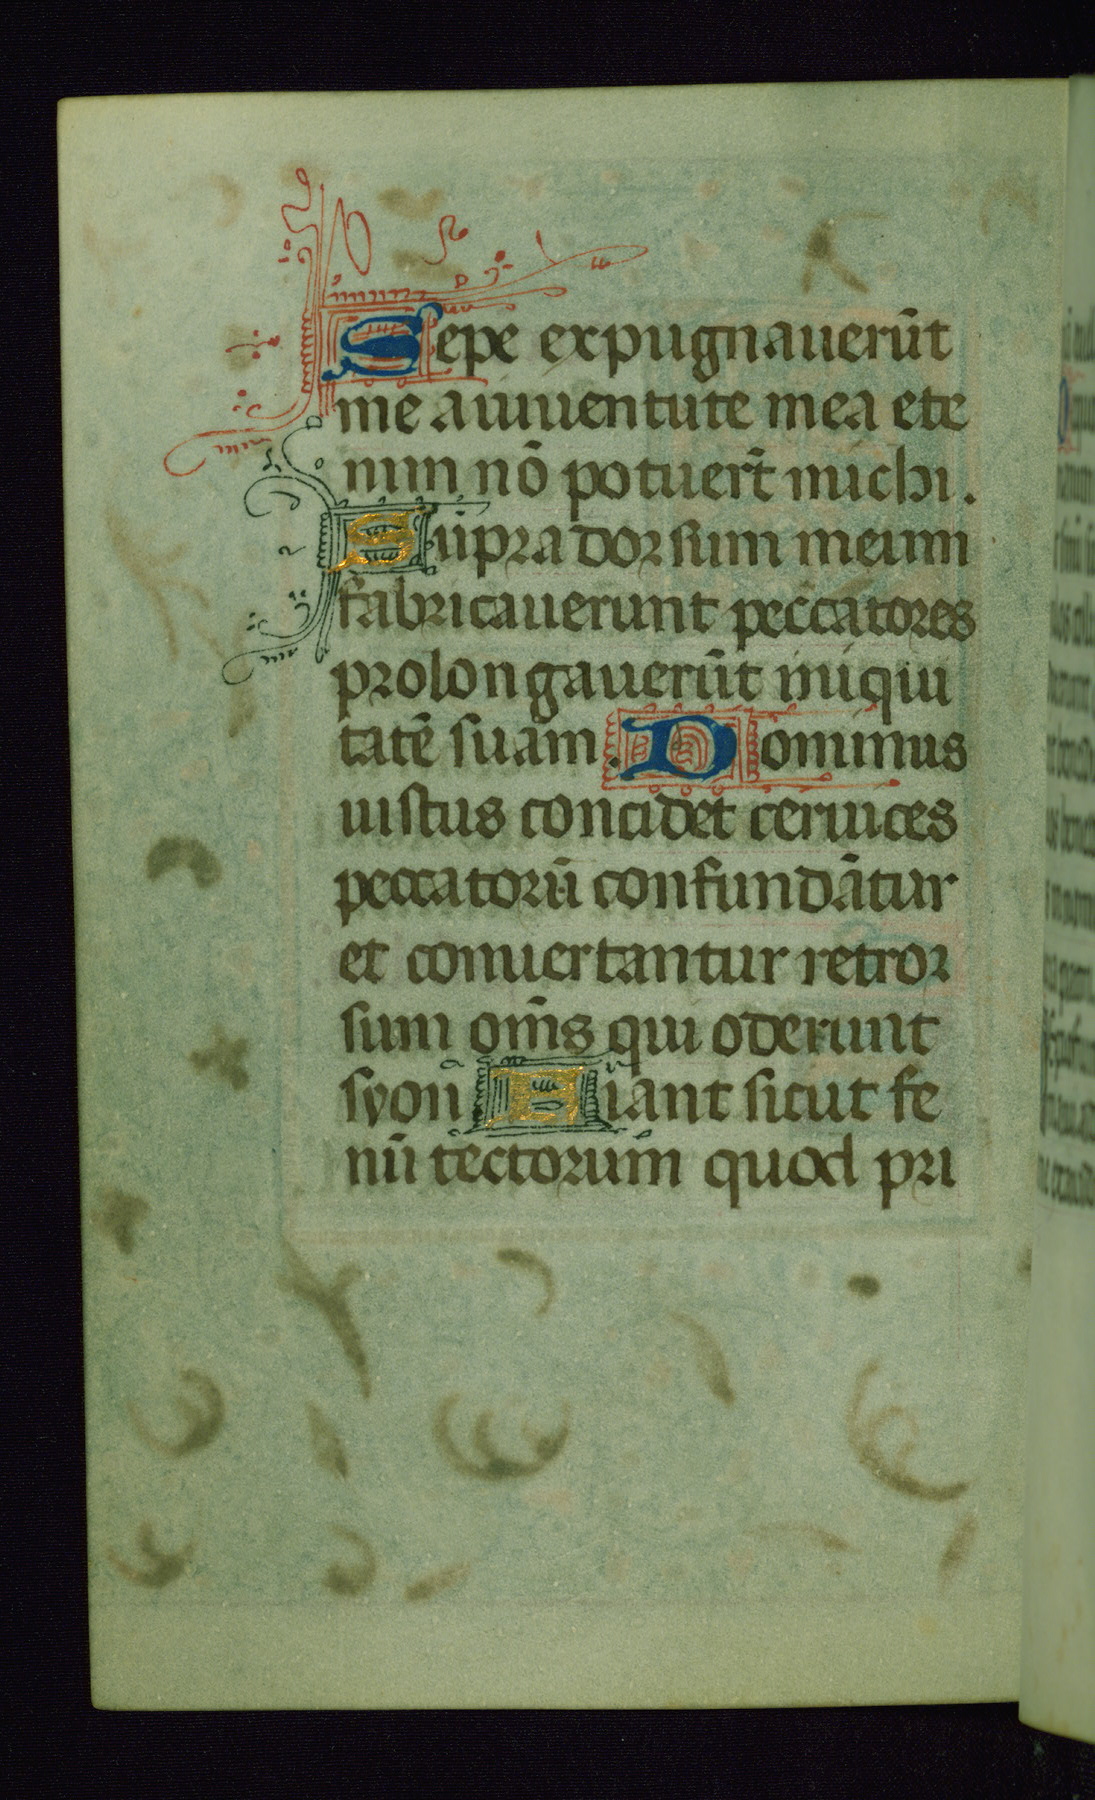 Sepe expugnauerūt
me a iuuentute mea ete
nim nō potuert̄ michi.
Supra dorsum meum
fabricauerunt peccatores
prolongauerūt iniqui
tatē suam. Dominus
iustus concidet ceruices
peccatorū confundātur
et conuertantur retror
sum om̄s qui oderunt
syon Fiant sicut fe
nū tectorum quod pri